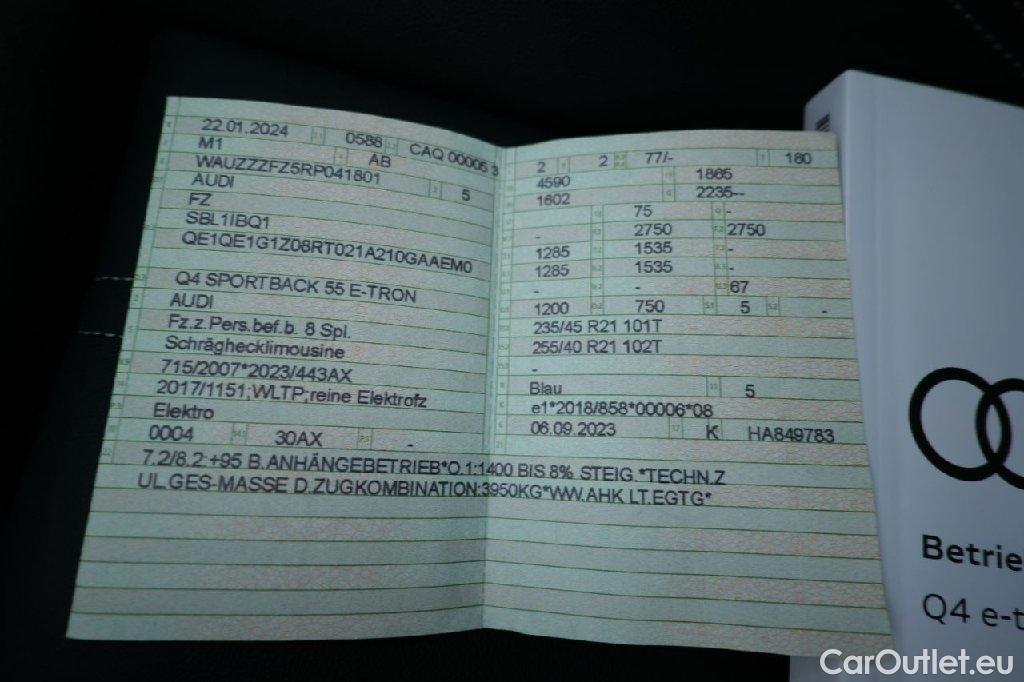 22.01.2024 0588 CAQ 00006 3
M1 AB
WAUZZZFZ5RP041801 5
AUDI
FZ
SBL1IBQ1
QE1QE1G1Z08RT021A210GAAEM0
Q4 SPORTBACK 55 E-TRON
AUDI
Fz.z.Pers.bef.b. 8 Spl.
Schräghecklimousine
715/2007*2023/443AX
2017/1151;WLTP;reine Elektrofz
Elektro
0004 30AX -
2 2 77/- 180
4590 1865
1602 2235--
75 -
- 2750 2750
1285 1535 -
1285 1535 -
- - 67
1200 750 5 -
235/45 R21 101T
255/40 R21 102T
-
Blau 5
e1*2018/858*00006*08
06.09.2023 K HA849783
7.2/8.2:+95 B.ANHÄNGEBETRIEB*O.1:1400 BIS 8% STEIG.*TECHN.Z
UL.GES-MASSE D.ZUGKOMBINATION:3950KG*WW.AHK LT.EGTG*
Betrie
Q4 e-t
CarOutlet.eu